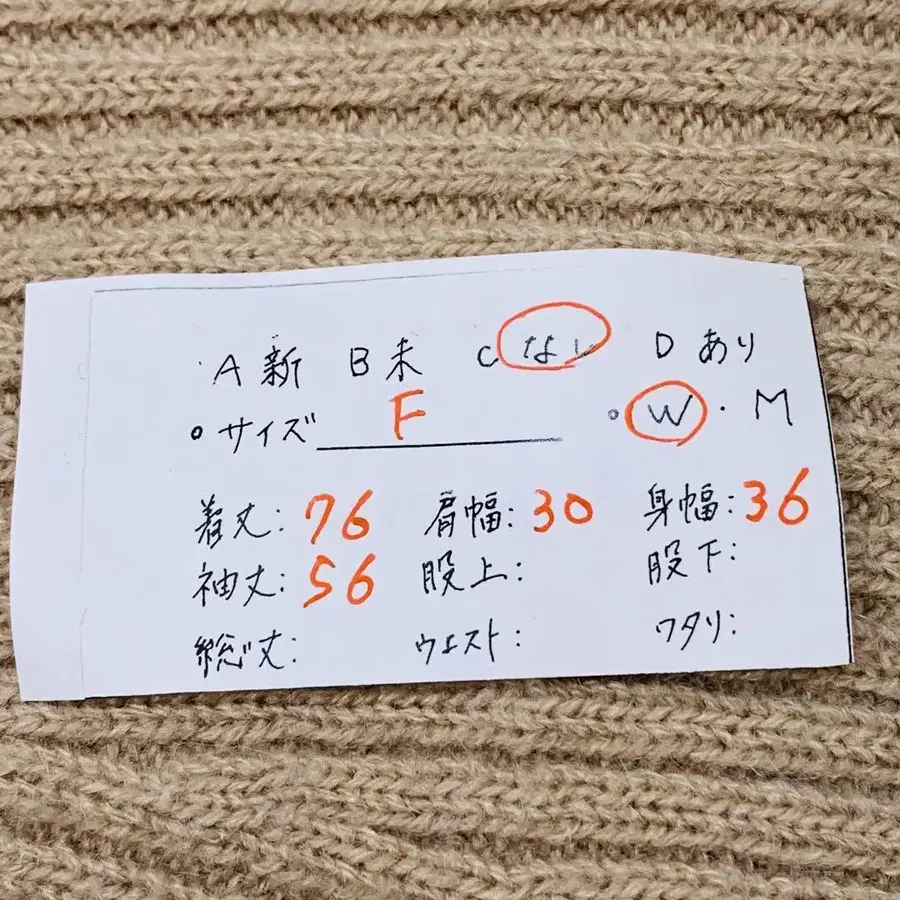 A 新 B 未 C なし D あり
○ サイズ F ○ W ・ M
着丈: 76 肩幅: 30 身幅: 36
袖丈: 56 股上: 股下:
総丈: ウエスト: ワタリ: